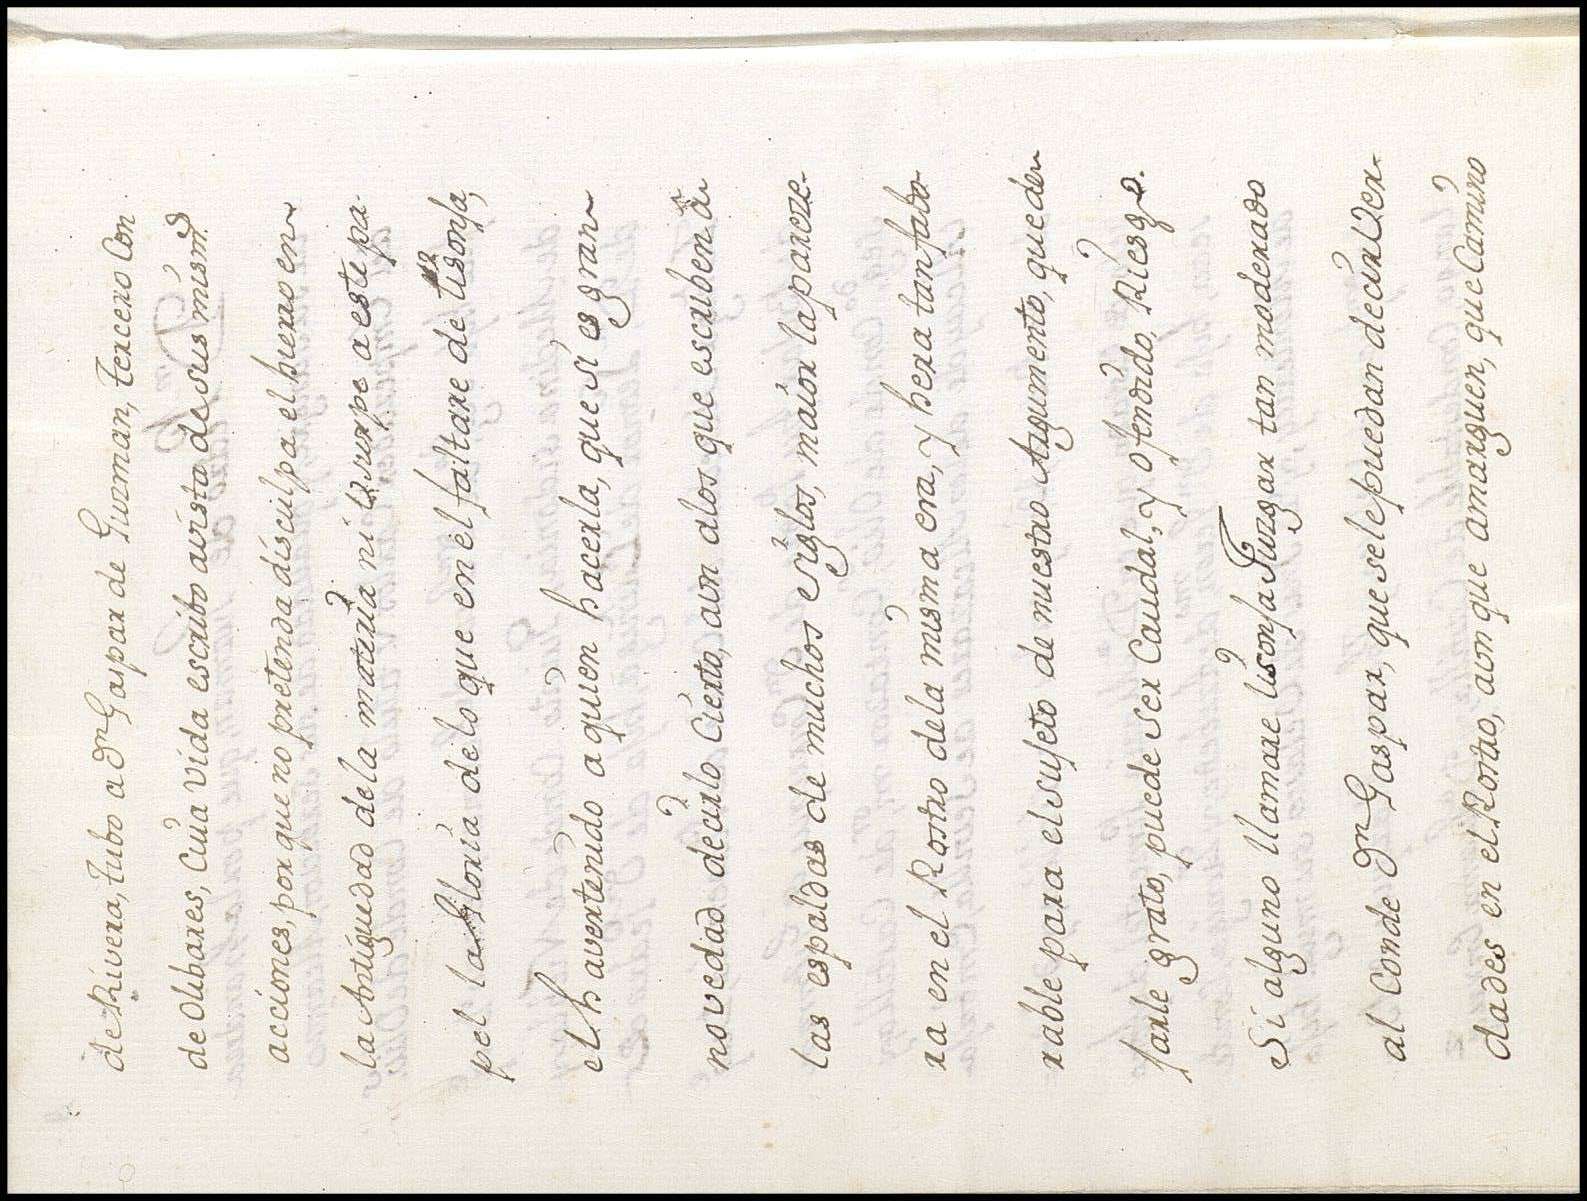 de Rivera, tubo a Dn Gaspar de Guzman, tercero Con
de Olibares, Cuia Vida escribo avista de sus mism.s
acciones, porque no pretenda disculpa el hierro en
la Antiguedad de la materia ni usurpe a este pa-
pel la Gloria de lo que en él faltare de lisonja,
el h avertenido a quien hacerla, que si es gran
novedad decirlo Cierto, aun alos que escriben a
las espaldas de muchos siglos, maior la pareze-
ra en el Rostro dela misma era, y hera tan fabo-
rable para el sujeto de nuestro Argumento, que de
jarle grato, puede ser Caudal, y ofendido, Riesgo.
Si alguno llamare lisonja Juzgar tan moderado
al Conde Dn Gaspar, que se le puedan decir Ver-
dades en el Rostro, aun que amarguen, que Camino